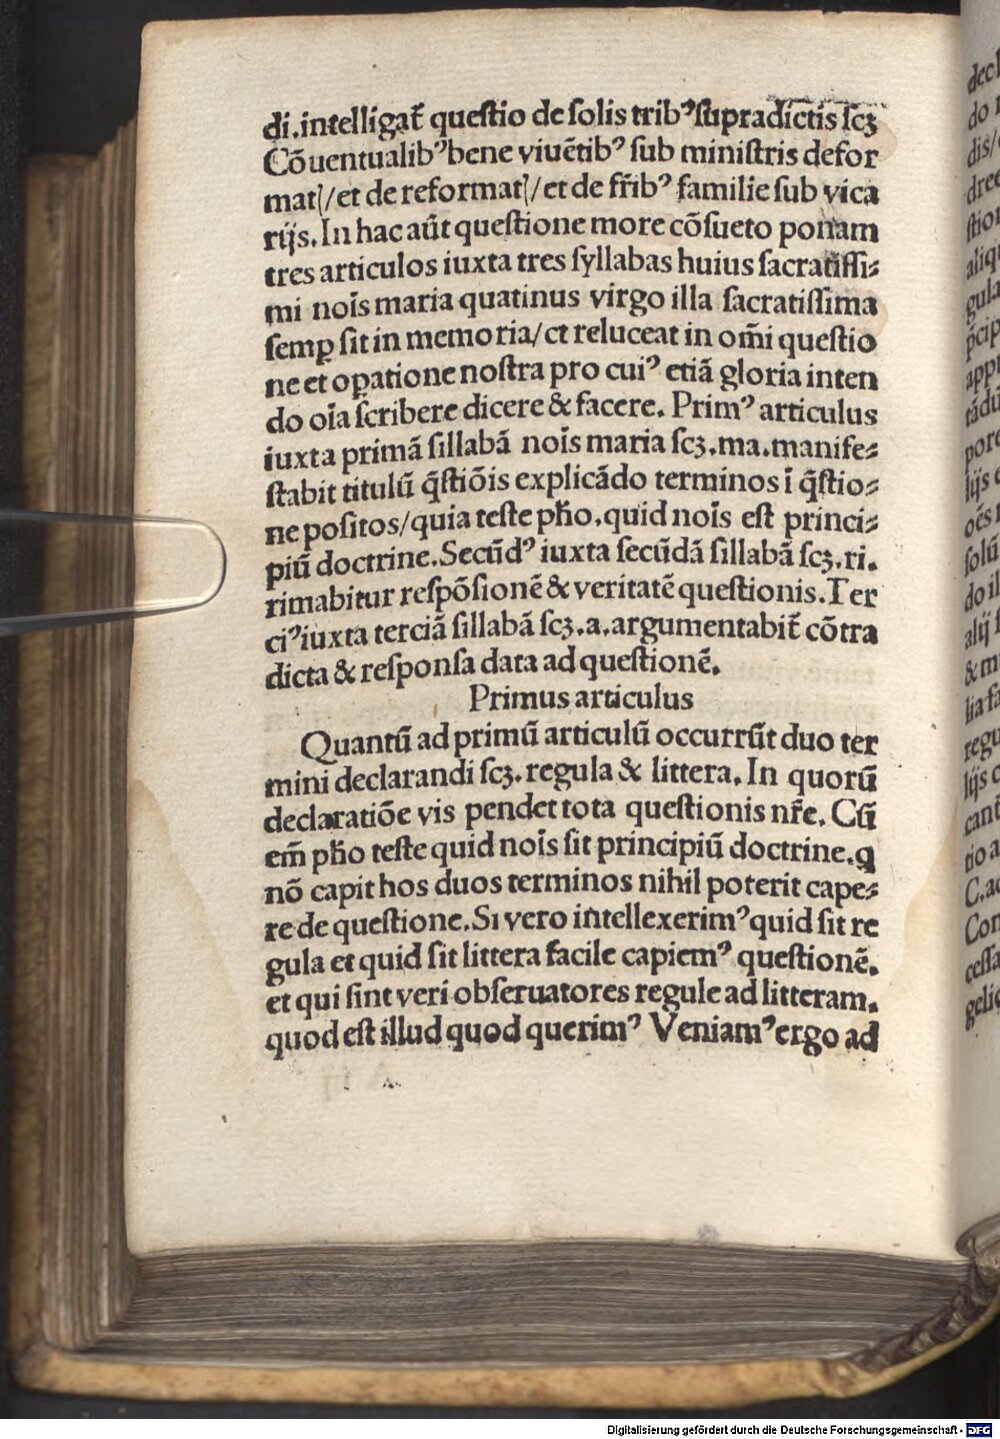 di.intelligat̃ queſtio de ſolis tribꝰſupradictis ſcꝫ
Cõuentualibꝰbene viuẽtibꝰ ſub miniſtris defor
matꝭ/et de reformatꝭ/et de fr̃ibꝰ familie ſub vica
rijs.In hac aũt queſtione more cõſueto ponam
tres articulos iuxta tres ſyllabas huius ſacratiſſi⸗
mi noĩs maria quatinus virgo illa ſacratiſſima
ſemꝑ ſit in memoria/et reluceat in om̃i queſtio
ne et oꝑatione noſtra pro cuiꝰ etiã gloria inten
do oĩa ſcribere dicere & facere. Primꝰ articulus
iuxta primã ſillabã noĩs maria ſcꝫ.ma.manife⸗
ſtabit titulũ q̃ſtiõis explicãdo terminos ĩ q̃ſtio⸗
ne poſitos/quia teſte ph̃o.quid noĩs eſt princi⸗
piũ doctrine.Secũdꝰ iuxta ſecũdã ſillabã ſcꝫ.ri.
rimabitur reſpõſionẽ & veritatẽ queſtionis.Ter
ciꝰiuxta terciã ſillabã ſcꝫ.a.argumentabit̃ cõtra
dicta & reſponſa data ad queſtionẽ.
Primus articulus
Quantũ ad primũ articulũ occurrũt duo ter
mini declarandi ſcꝫ.regula & littera.In quorũ
declaratiõe vis pendet tota queſtionis nr̃e. Cũ
em̃ ph̃o teſte quid noĩs ſit principiũ doctrine.q
nõ capit hos duos terminos nihil poterit cape⸗
re de queſtione.Si vero intellexerimꝰquid ſit re
gula et quid ſit littera facile capiemꝰ queſtionẽ.
et qui ſint veri obſeruatores regule ad litteram.
quod eſt illud quod querimꝰ Veniamꝰergo ad
Digitalisierung gefördert durch die Deutsche Forschungsgemeinschaft - DFG